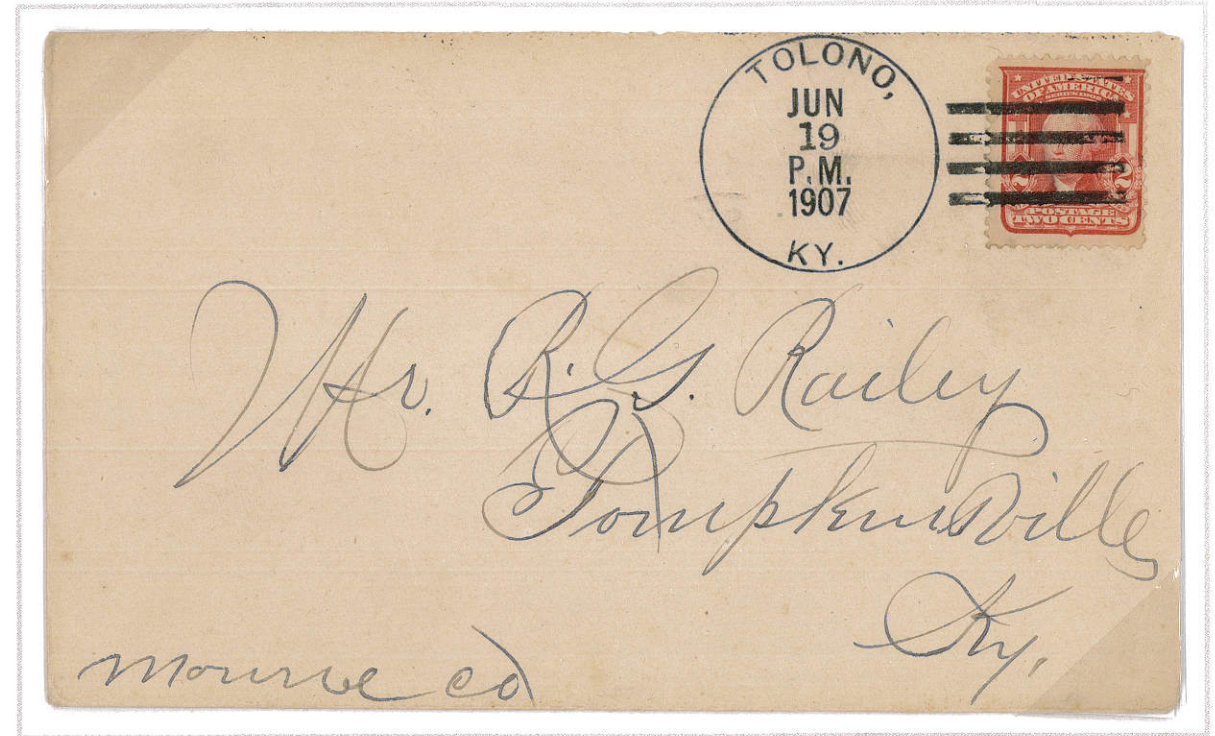 TOLONO,
JUN
19
P.M.
1907
KY.
UNITED STATES
OF AMERICA
SERIES 1902
2 2
POSTAGE
TWO CENTS
Mr. R. G. Railey
Tompkinsville
Ky.
Monroe Co